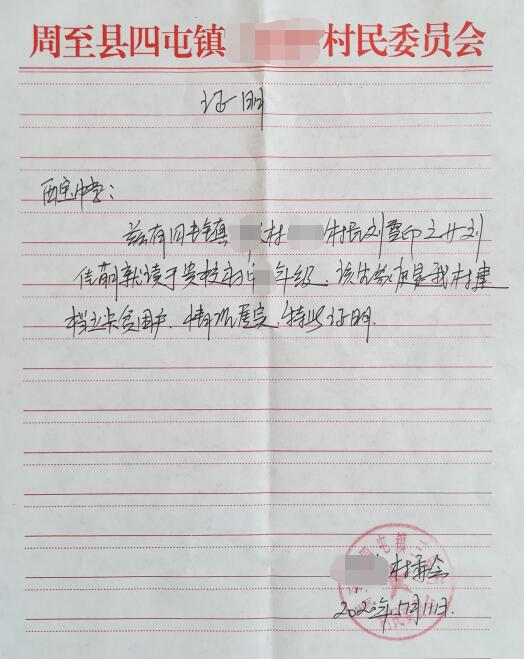 周至县四屯镇 村民委员会
证明
兹有四屯镇 村 村民刘 之女刘
佳萌就读于贵校 年级,该 家是我村建
档立卡贫困户,情况属实,特此证明.
村委会